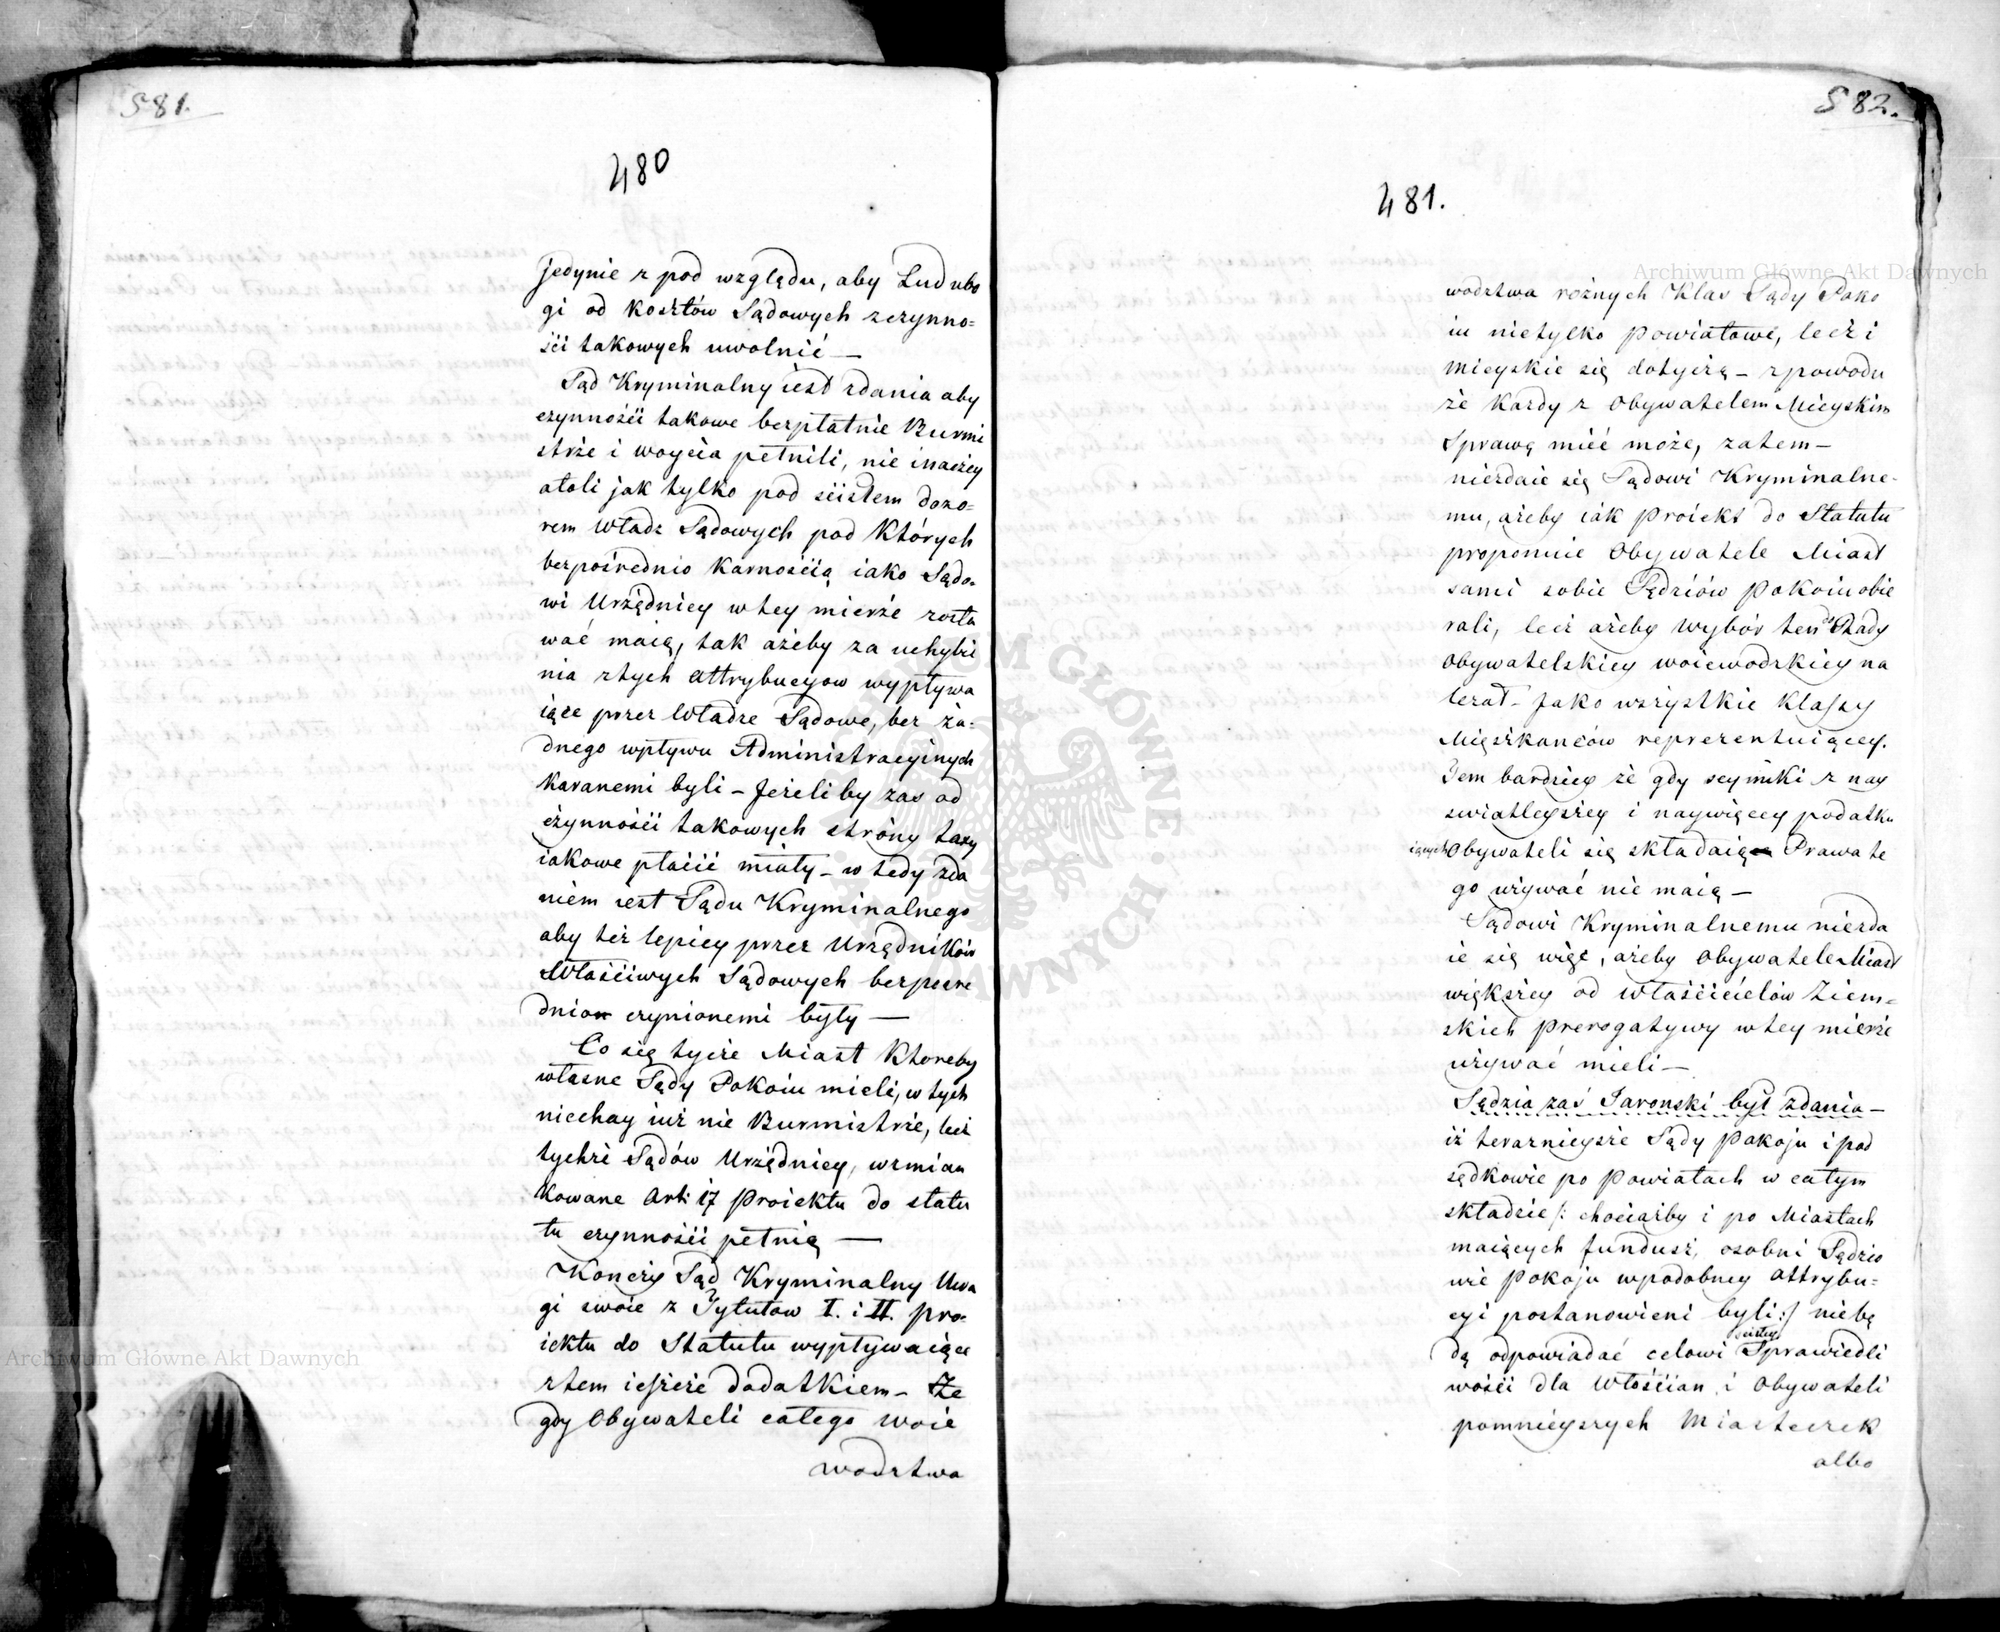 581.
480
jedynie z pod względu, aby Lud ubo
gi od kosztów Sądowych z czynno=
ści takowych uwolnić —
Sąd Kryminalny iest zdania aby
czynności takowe bezpłatnie Burmi
strze i woycia pełnili, nie inaczey
atoli jak tylko pod scisłem dozo=
rem Władz Sądowych pod Których
bezpośrednio Karnością iako Sądo=
wi Urzędnicy w tey mierze zosta
wać maią, tak ażeby za uchybie
nia z tych attrybucyow wypływa
iące przez Władze Sądowe, bez ża=
dnego wpływu Administracyinych
karanemi byli – Jeżeli by zas od
czynności takowych stróny taxy
iakowe płacić miały – w tedy zda
niem iest Sądu Kryminalnego
aby też lepiey przez Urzędników
Właściwych Sądowych bezposre
dnio czynionemi były —
Co się tycze Miast Ktoreby
własne Sądy Pokoiu mieli, w tych
niechay iuż nie Burmistrze, lecz
tychże Sądów Urzędnicy, wzmian
kowane Art: 17 Proiektu do statu
tu czynności pełnią —
Kończy Sąd Kryminalny Uwa
gi swoie z Tytutow I. i II. pro=
iektu do Statutu wypływaiące
ztem ieszcze dodatkiem – Że
gdy Obywateli całego Woie
wodztwa
582.
481.
wodztwa rożnych Klas Sądy Poko
iu nietylko Powiatowe, lecz i
mieyskie się dotyczą – z powodu
że Kazdy z Obywatelem Mieyskim
Sprawę mieć może, zatem –
niezdaie się Sądowi Kryminalne=
mu, ażeby iak Proiekt do Statutu
proponuie Obywatele Miast
sami sobie Sędziów Pokoiu obie
rali, lecz ażeby Wybór ten do Rady
Obywatelskiey woiewodzkiey na
lezał – Jako wszystkie Klassy
Mięszkańców reprezentuiącey.
Tem bardziey że gdy seymiki z nay
swiatleyszey i naywięcey podatku
iących Obywateli się składaią Prawa te
go używać nie maią —
Sądowi Kryminalnemu niezda
ie się więc, ażeby Obywatele Miast
większey od Właścicielów Ziem=
skich prerogatywy w tey mierze
używać mieli —
Sędzia zaś Jaronski był zdania –
iż terazniejsze Sądy Pokoju i pod
sędkowie po Powiatach w całym
składzie /: chociażby i po Miastach
maiących fundusz, osobni Sędzio
wie Pokoju w podobney attrybu=
cyi postanowieni byli :/ niebę
dą odpowiadać celowi scisłey Sprawiedli
wości dla Włościan i Obywateli
pomnieyszych Miasteczek
albo
Archiwum Główne Akt Dawnych
Archiwum Główne Akt Dawnych